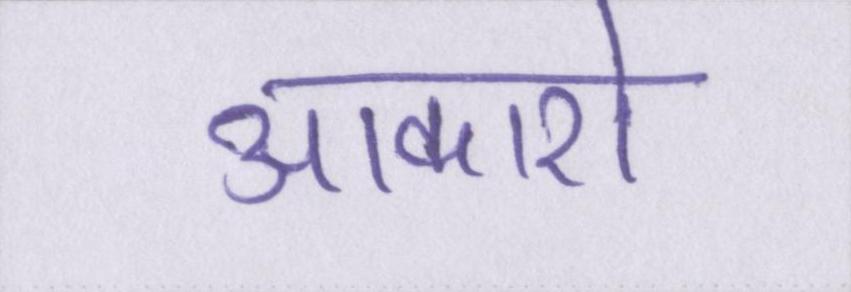 आकारो